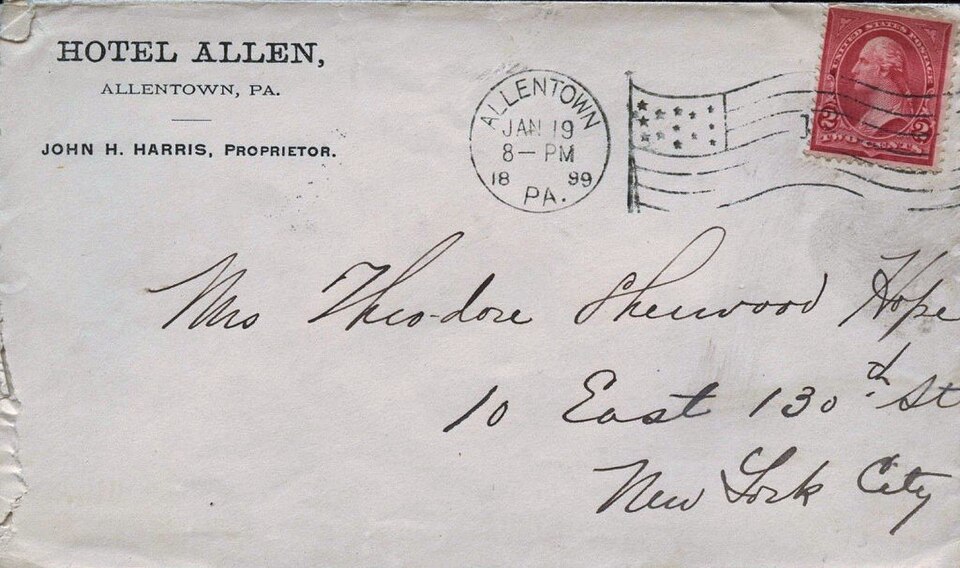 HOTEL ALLEN,
ALLENTOWN, PA.
JOHN H. HARRIS, PROPRIETOR.
ALLENTOWN
JAN 19
8 – PM
18 99
PA.
1
UNITED STATES POSTAGE
2 2
TWO CENTS
Mrs Theo-dore Sherwood Hope
10 East 130th St
New York City